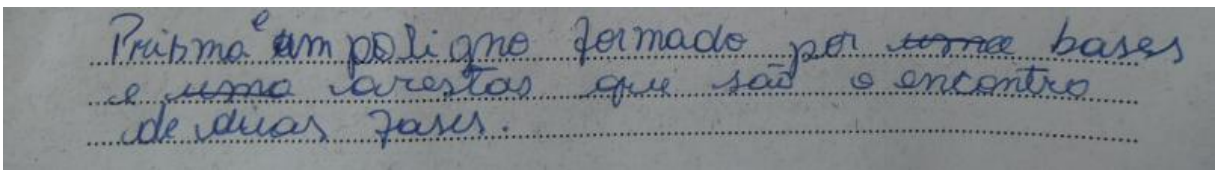 Prisma é um poligno formado por uma bases
e uma arestas que são o encontro
de duas fases.